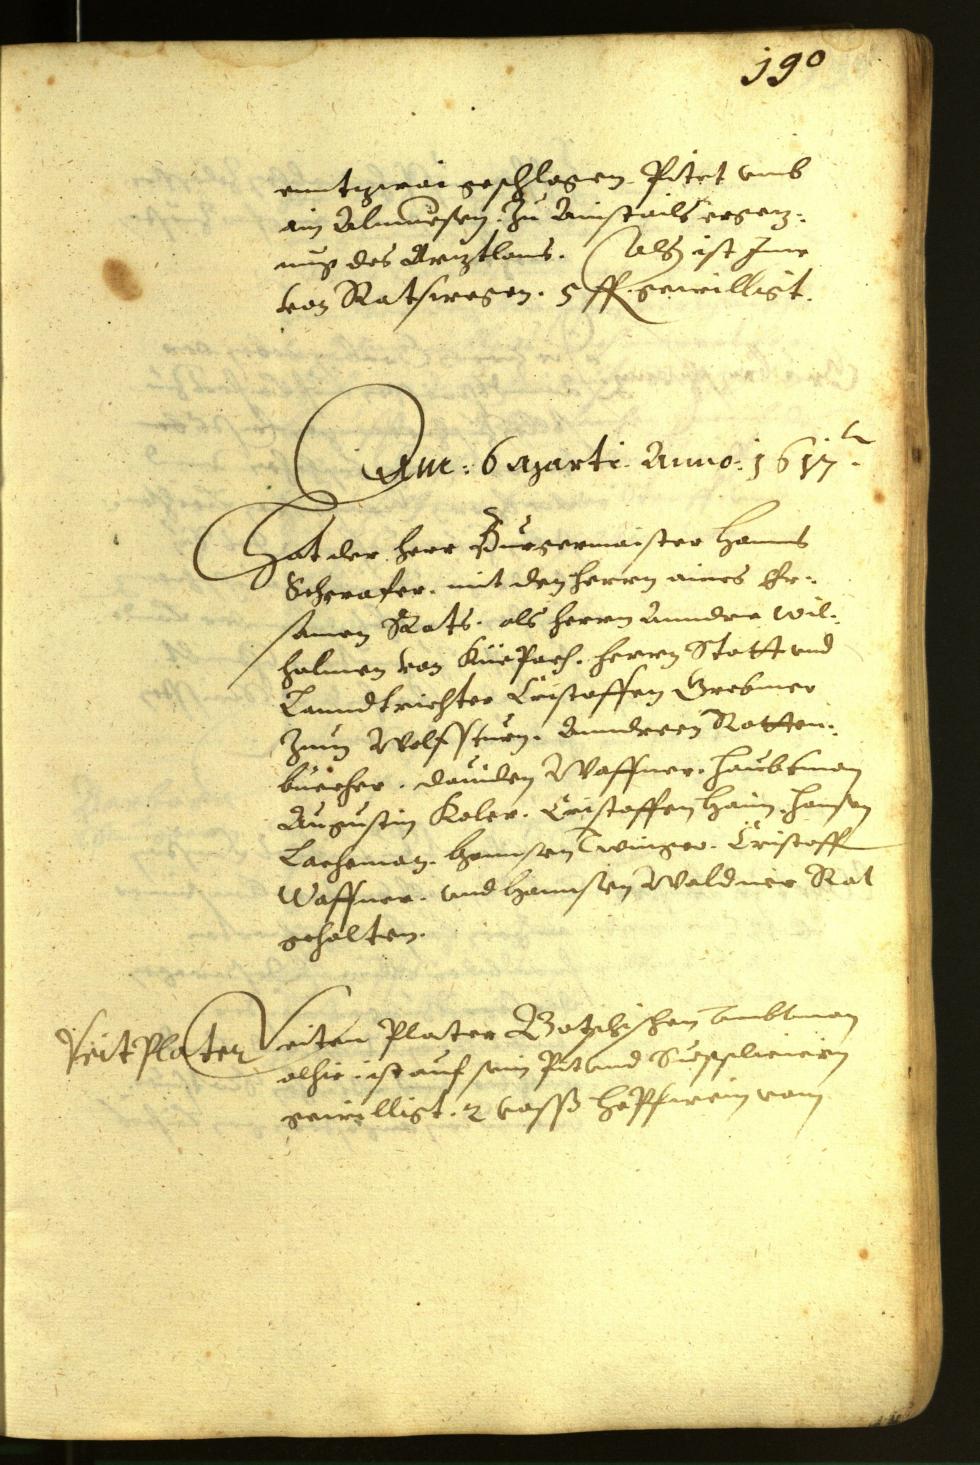 190
enntzwai geschlagen. Pitet umb
ain Almuesen. Zu ainstails ergez:
nus des Arztlons. Als ist Ime
von Ratswegen. 5 ff. gewilligt.
Am: 6 Marti. Anno: 1617.
Hat der herr Burgermaister Hanns
Scherafer. mit den herrn aines Er:
samen Rats. als herrn Anndre Wil:
halmen von Küepach. herrn Statt und
Lanndtrichter Cristoffen Grebmer
Zum Wolfsturn. Anndreen Rotten:
buecher. Daviden Waffner. Haubtman
Augustin Koler. Cristoffen Haim. Hansen
Lacheman. Hannsen Zwinger. Cristoff
Waffner. und Hannsen Waldner Rat
gehalten.
Veit Plater
Veiten Plater Botzhischen Ambtman
alhie. ist auf sein Pit und Supplicieren
gewilligt. 2 vasß Hepfwein vom